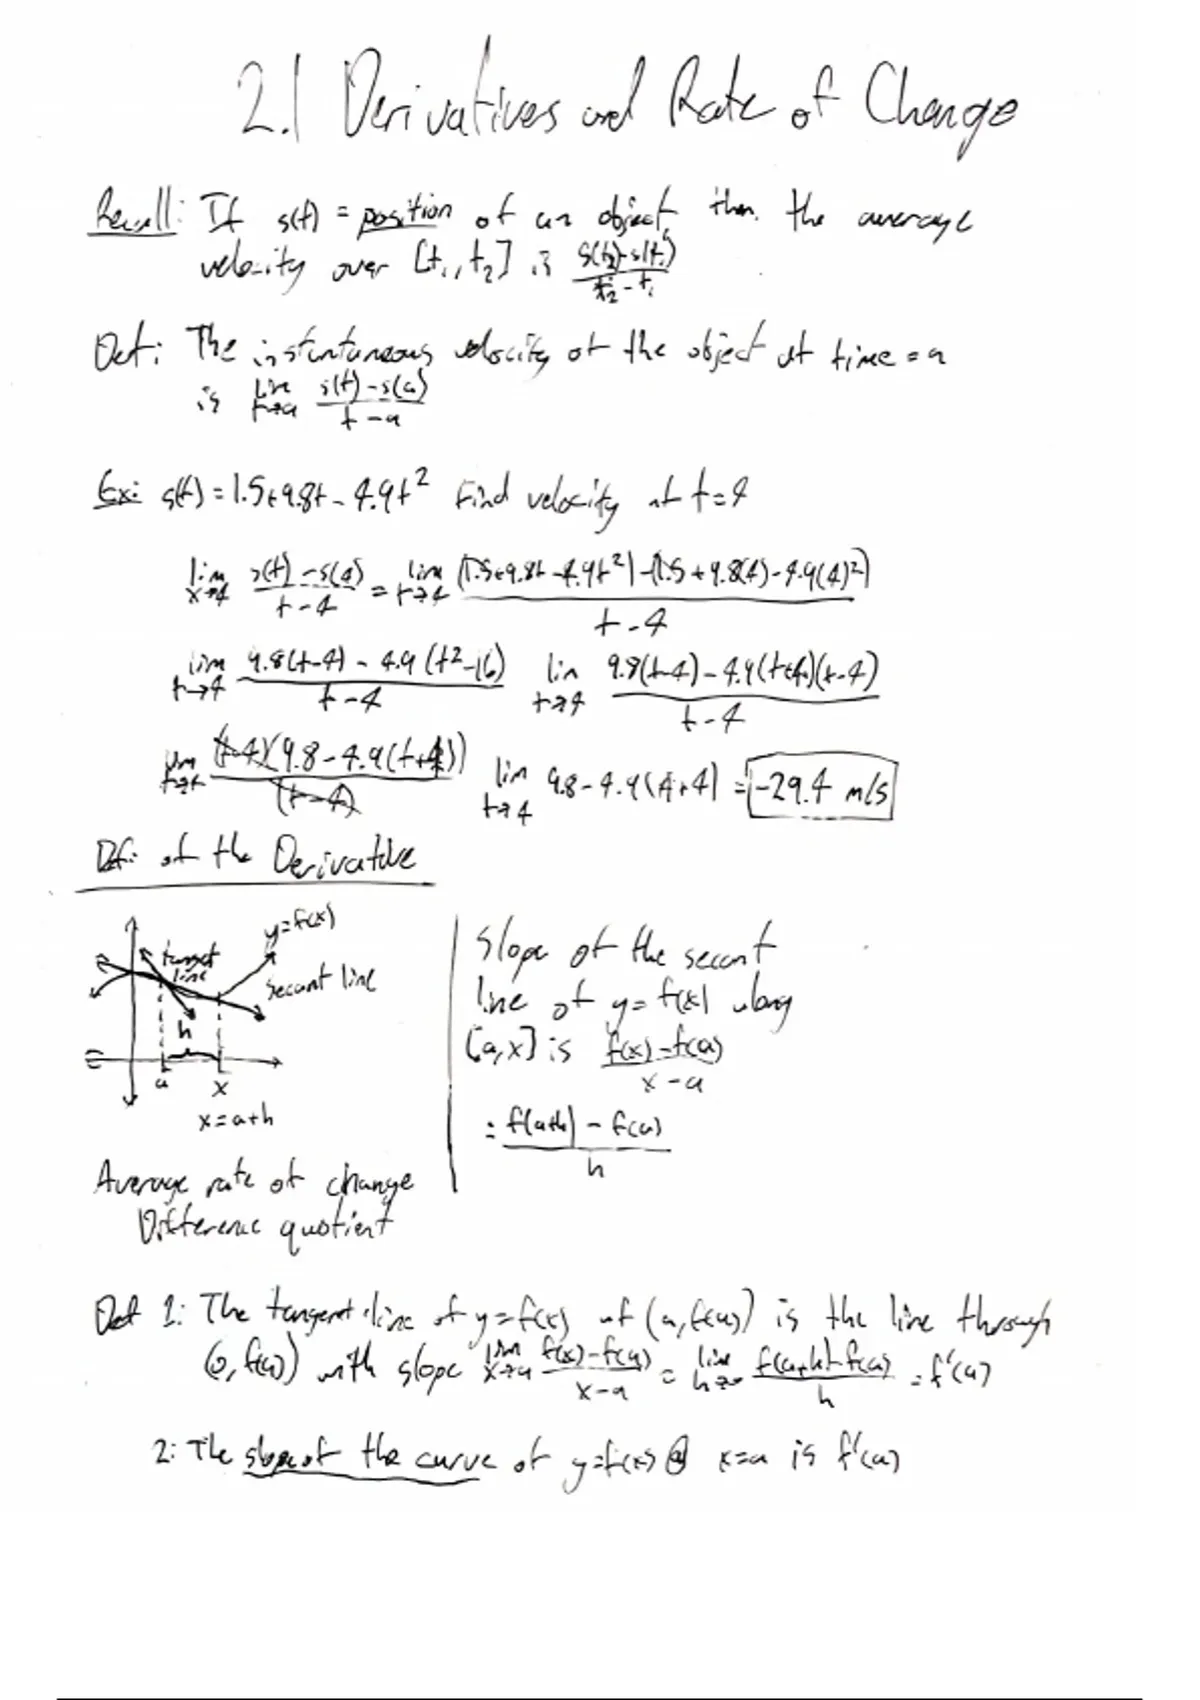 2.1 Derivatives and Rate of Change
Recall: If s(t) = position of an object, then the average
velocity over [t₁, t₂] is (s(t₂)-s(t₁))/(t₂-t₁)
Def: The instantaneous velocity of the object at time = a
is lim t→a (s(t)-s(a))/(t-a)
Ex: s(t) = 1.5+9.8t-4.9t² Find velocity at t=4
lim x→4 (s(t)-s(4))/(t-4) = lim t→4 ((1.5+9.8t-4.9t²)-(1.5+9.8(4)-4.9(4)²))/(t-4)
lim t→4 (9.8(t-4)-4.9(t²-16))/(t-4) lim t→4 (9.8(t-4)-4.9(t+4)(t-4))/(t-4)
lim t→4 ((t-4)(9.8-4.9(t+4)))/(t-4) lim t→4 9.8-4.9(4+4) = -29.4 m/s
Def: of the Derivative
y=f(x)
tangent
line
secant line
h
a x
x=a+h
Average rate of change
Difference quotient
Slope of the secant
line of y=f(x) along
[a,x] is (f(x)-f(a))/(x-a)
= (f(a+h)-f(a))/h
Def 1: The tangent line of y=f(x) at (a,f(a)) is the line through
(a,f(a)) with slope lim x→a (f(x)-f(a))/(x-a) = lim h→0 (f(a+h)-f(a))/h = f'(a)
2: The slope of the curve of y=f(x) @ x=a is f'(a)